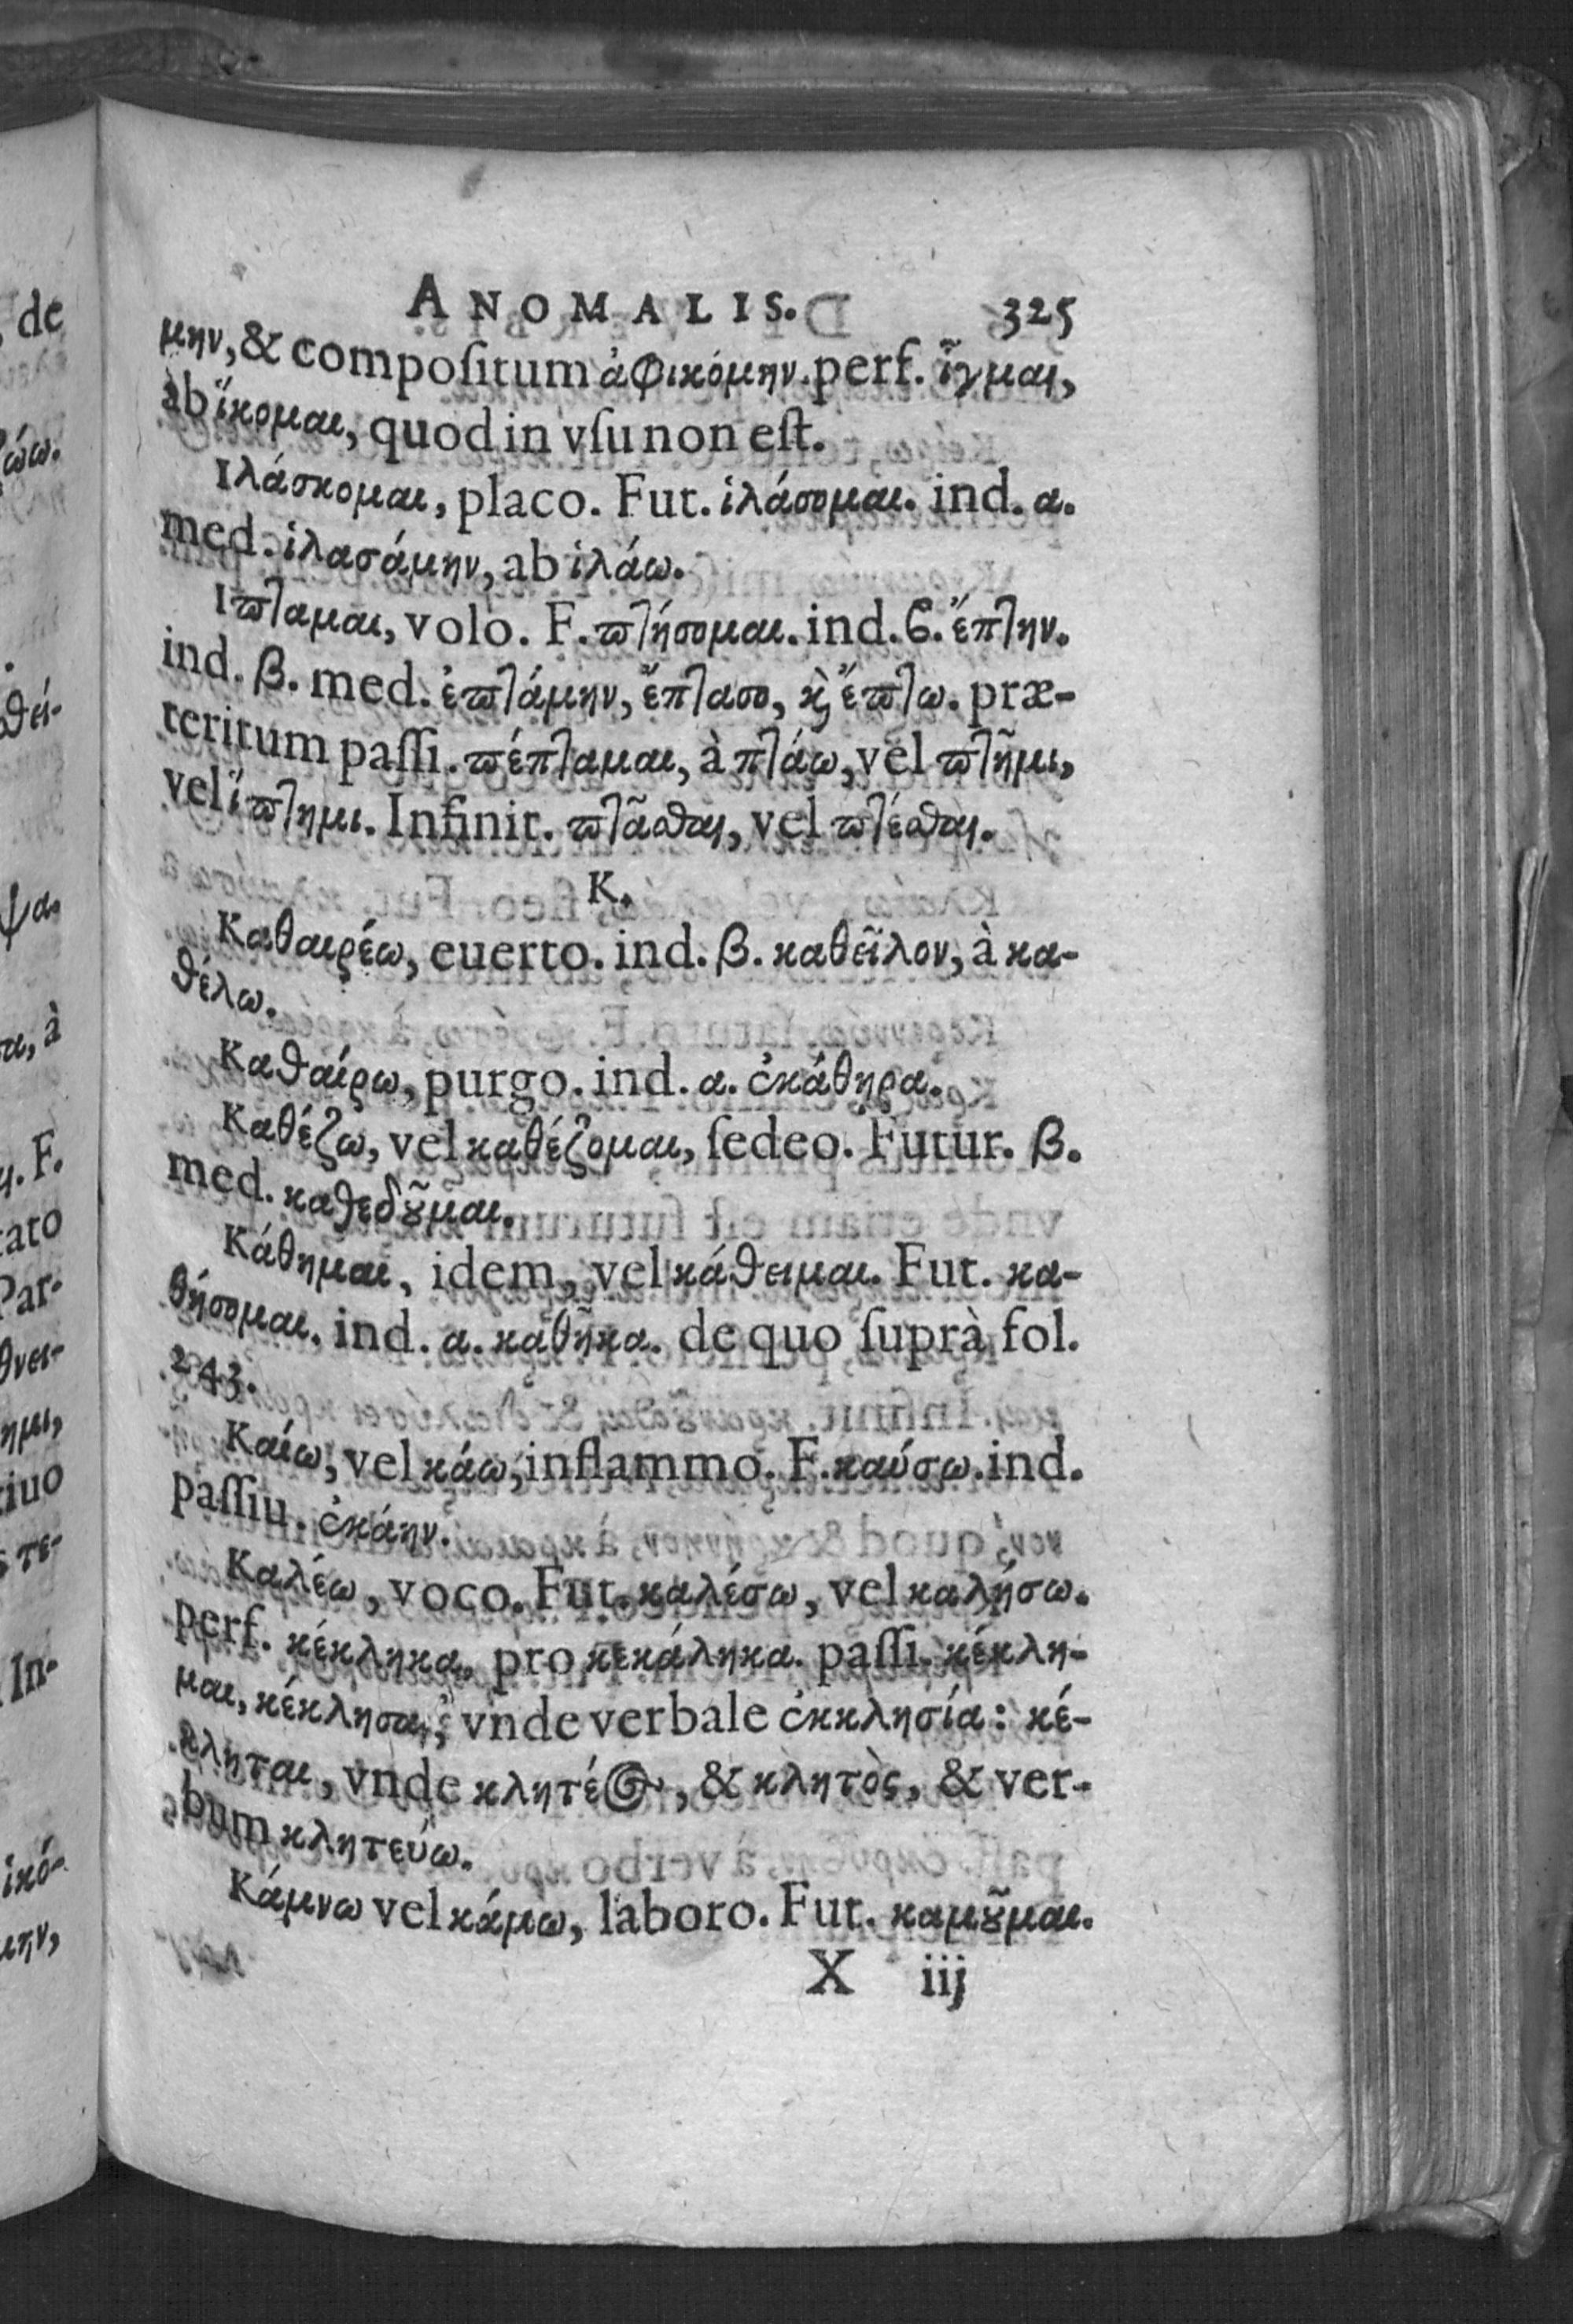 ANOMALIS. 325
μην, & compoſitum ἀφικόμην. perf. ἷγμαι,
ab ἵκομαι, quod in vſu non eſt.
Ιλάσκομαι, placo. Fut. ἱλάσομαι. ind. α.
med. ἱλασάμην, ab ἱλάω.
Ιπταμαι, volo. F. πτήσομαι. ind. ϐ. ἔπτην.
ind. β. med. ἐπτάμην, ἔπτασο, ϗ ἔπτω. præ-
teritum paſſi. πέπταμαι, à πτάω, vel πτῆμι,
vel ἵπτημι. Infinit. πτᾶσθαι, vel πτέσθαι.
K.
Καθαιρέω, euerto. ind. β. καθεῖλον, à κα-
θέλω.
Καθαίρω, purgo. ind. α. ἐκάθηρα.
Καθέζω, vel καθέζομαι, ſedeo. Futur. β.
med. καθεδοῦμαι.
Κάθημαι, idem, vel κάθειμαι. Fut. κα-
θήσομαι. ind. α. καθῆκα. de quo ſuprà fol.
243.
Καίω, vel κάω, inflammo. F. καύσω. ind.
paſſiu. ἐκάην.
Καλέω, voco. Fut. καλέσω, vel καλήσω.
perf. κέκληκα, pro κεκάληκα. paſſi. κέκλη-
μαι, κέκλησαι, vnde verbale ἐκκλησία: κέ-
κληται, vnde κλητέος, & κλητὸς, & ver-
bum κλητεύω.
Κάμνω vel κάμω, laboro. Fut. καμοῦμαι.
X iij
de
ώω.
θεί-
ψα.
α, à
F.
Par-
θνει-
ημι,
τε-
In-
ἱκό-
μην,